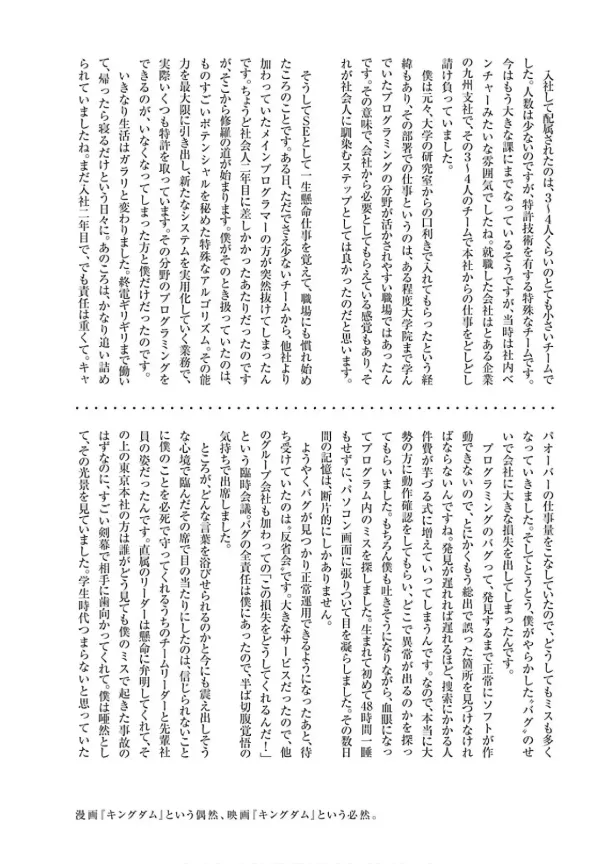 入社して配属されたのは、3〜4人くらいのとても小さいチームで
した。人数は少ないのですが、特許技術を有する特殊なチームです。
今はもう大きな課にまでなっているそうですが、当時は社内ベ
ンチャーみたいな雰囲気でしたね。就職した会社はとある企業
の九州支社で、その3〜4人のチームで本社からの仕事をどしどし
請け負っていました。
僕は元々、大学の研究室からの口利きで入れてもらったという経
緯もあり、その部署での仕事というのは、ある程度大学院まで学ん
でいたプログラミングの分野が活かされやすい職場ではあったん
です。その意味で、会社から必要としてもらえている感覚もあり、そ
れが社会人に馴染むステップとしては良かったのだと思います。
そうしてSEとして一生懸命仕事を覚えて、職場にも慣れ始め
たころのことです。ある日、ただでさえ少ないチームから、他社より
加わっていたメインプログラマーの方が突然抜けてしまったん
です。ちょうど社会人二年目に差しかかったあたりだったのです
が、そこから修羅の道が始まります。僕がそのとき扱っていたのは、
ものすごいポテンシャルを秘めた特殊なアルゴリズム。その能
力を最大限に引き出し、新たなシステムを実用化していく業務で、
実際いくつも特許を取っています。その分野のプログラミングを
できるのが、いなくなってしまった方と僕だけだったのです。
いきなり生活はガラリと変わりました。終電ギリギリまで働い
て、帰ったら寝るだけという日々に。あのころは、かなり追い詰め
られていましたね。まだ入社二年目で、でも責任は重くて。キャ
パオーバーの仕事量をこなしていたので、どうしてもミスも多く
なっていきました。そしてとうとう、僕がやらかした〝バグ〟のせ
いで会社に大きな損失を出してしまったんです。
プログラミングのバグって、発見するまで正常にソフトが作
動できないので、とにかくもう総出で誤った箇所を見つけなけれ
ばならないんですね。発見が遅れれば遅れるほど、捜索にかかる人
件費が芋づる式に増えていってしまうんです。なので、本当に大
勢の方に動作確認をしてもらい、どこで異常が出るのかを探っ
てもらいました。もちろん僕も吐きそうになりながら、血眼になっ
てプログラム内のミスを探しました。生まれて初めて48時間一睡
もせずに、パソコン画面に張りついて目を凝らしました。その数日
間の記憶は、断片的にしかありません。
ようやくバグが見つかり正常運用できるようになったあと、待
ち受けていたのは〝反省会〟です。大きなサービスだったので、他
のグループ会社も加わっての「この損失をどうしてくれるんだ!」
という臨時会議。バグの全責任は僕にあったので、半ば切腹覚悟の
気持ちで出席しました。
ところが、どんな言葉を浴びせられるのかと今にも震え出しそう
な心境で臨んだその席で目の当たりにしたのは、信じられないこと
に僕のことを必死で守ってくれるうちのチームリーダーと先輩社
員の姿だったんです。直属のリーダーは懸命に弁明してくれて、そ
の上の東京本社の方は誰がどう見ても僕のミスで起きた事故の
はずなのに、すごい剣幕で相手に歯向かってくれて。僕は唖然とし
て、その光景を見ていました。学生時代つまらないと思っていた
漫画『キングダム』という偶然、映画『キングダム』という必然。